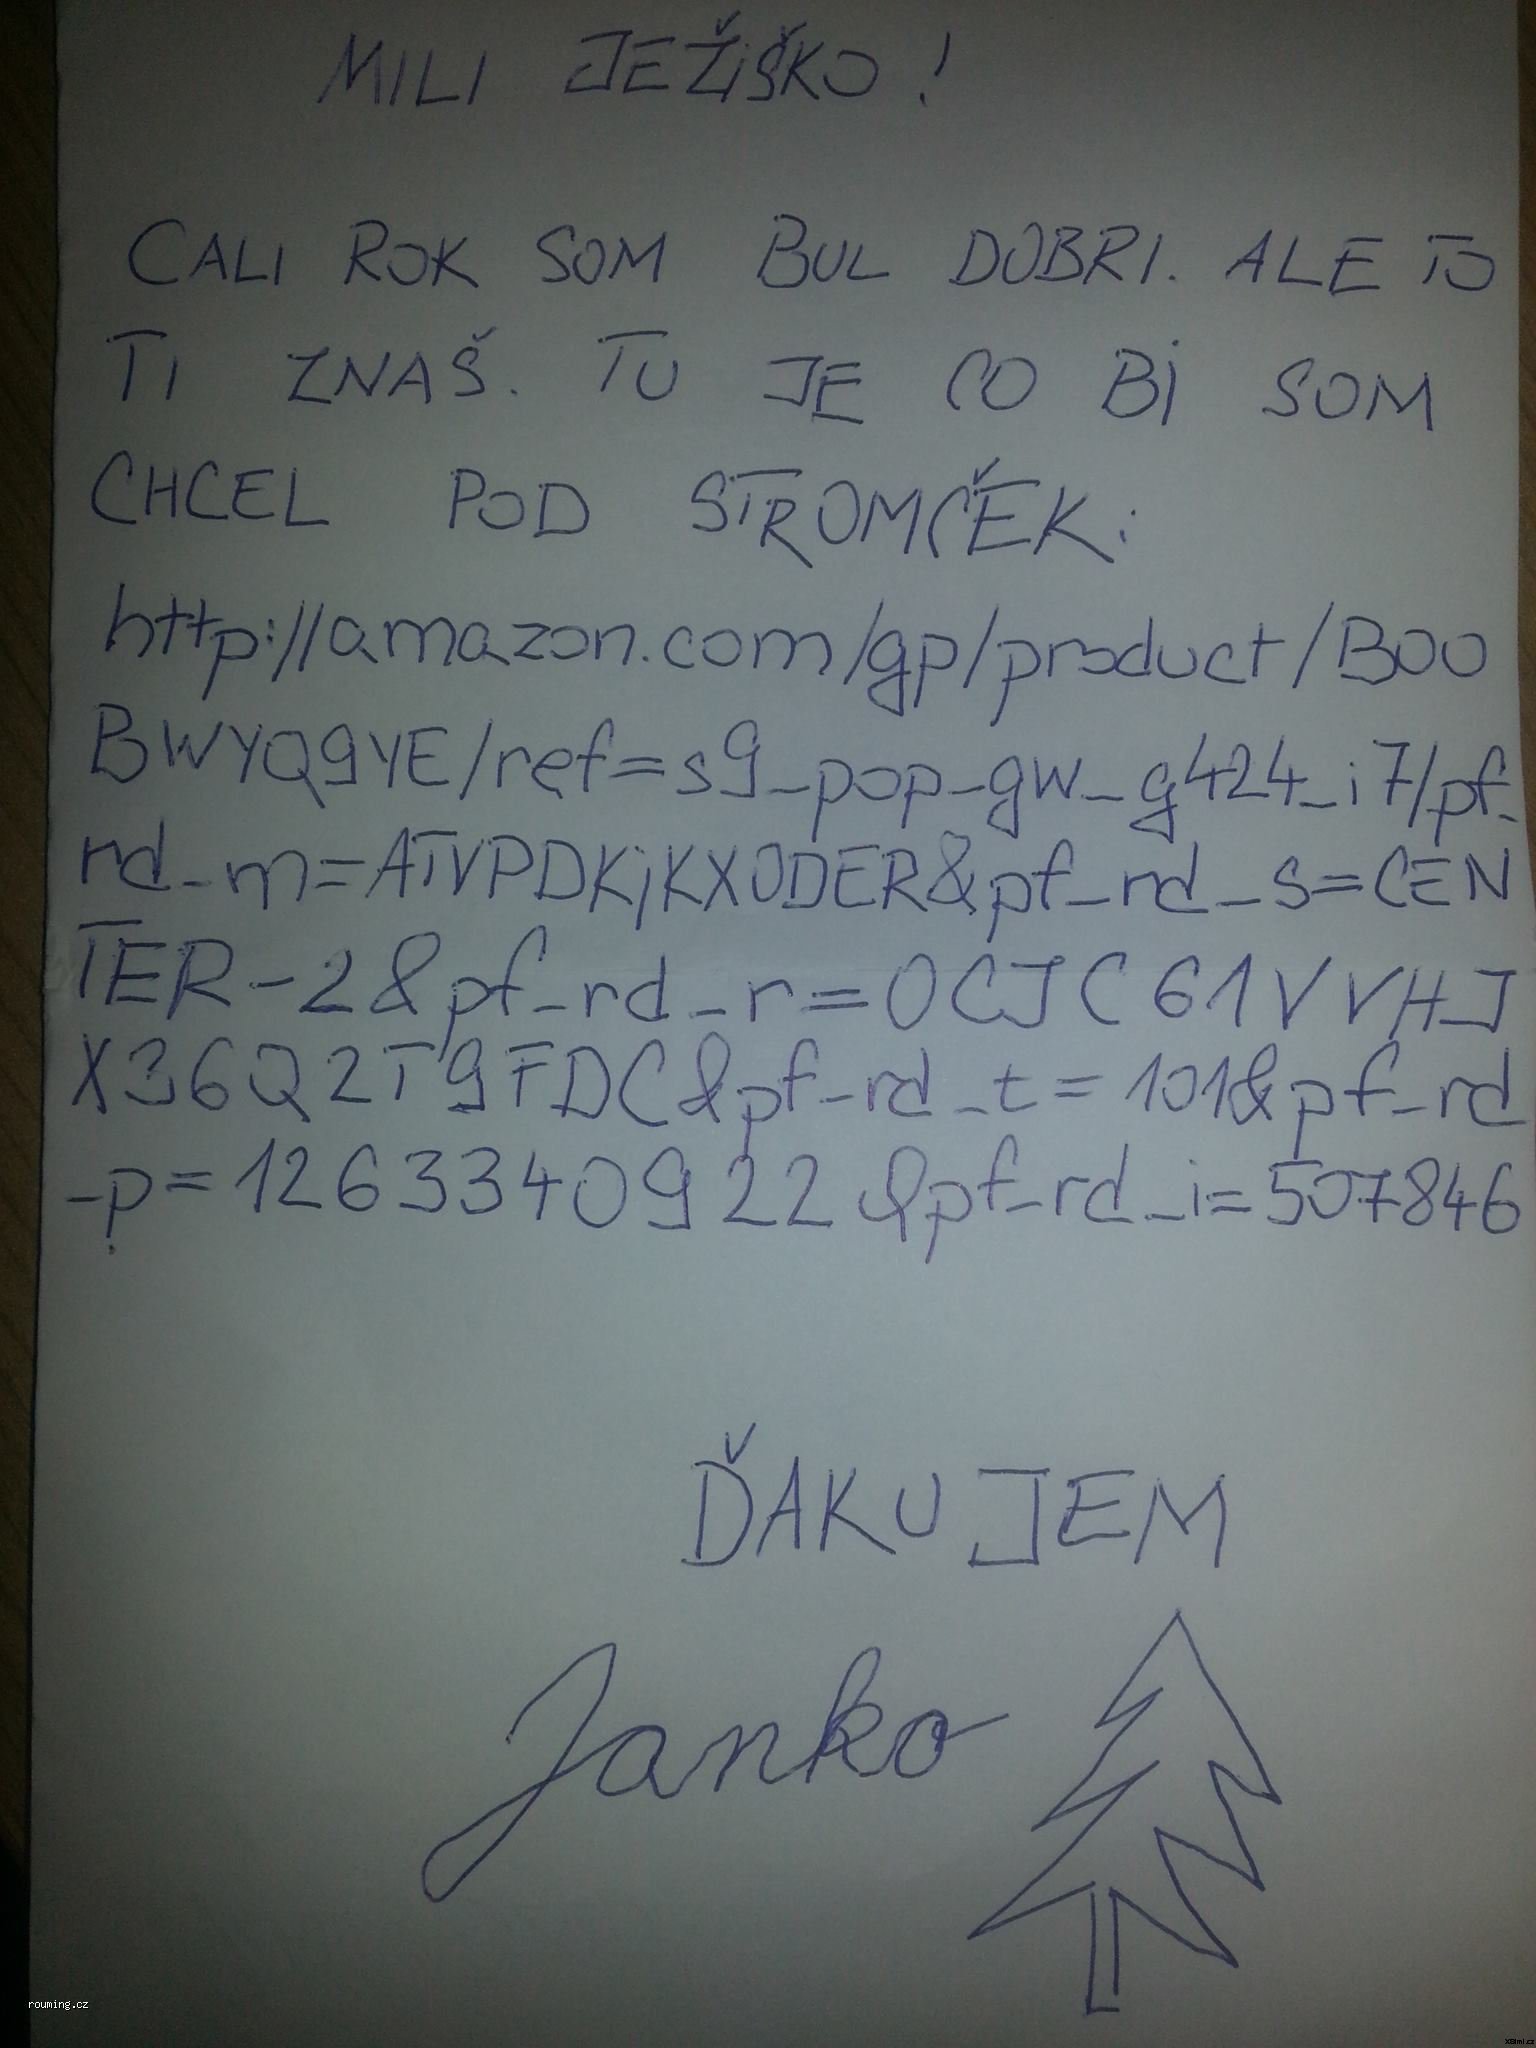 MILI JEŽIŠKO!
CALI ROK SOM BUL DOBRI. ALE TO
TI ZNAŠ. TU JE CO BI SOM
CHCEL POD STROMČEK:
http://amazon.com/gp/product/B00
BWYQ9YE/ref=s9_pop_gw_g424_i7/pf_
rd_m=ATVPDKjKX0DER&pf_rd_s=CEN
TER-2&pf_rd_r=0CJC61VVHJ
X36Q2T9FDC&pf_rd_t=101&pf_rd
_p=1263340922&pf_rd_i=507846
ĎAKUJEM
Janko
rouming.cz